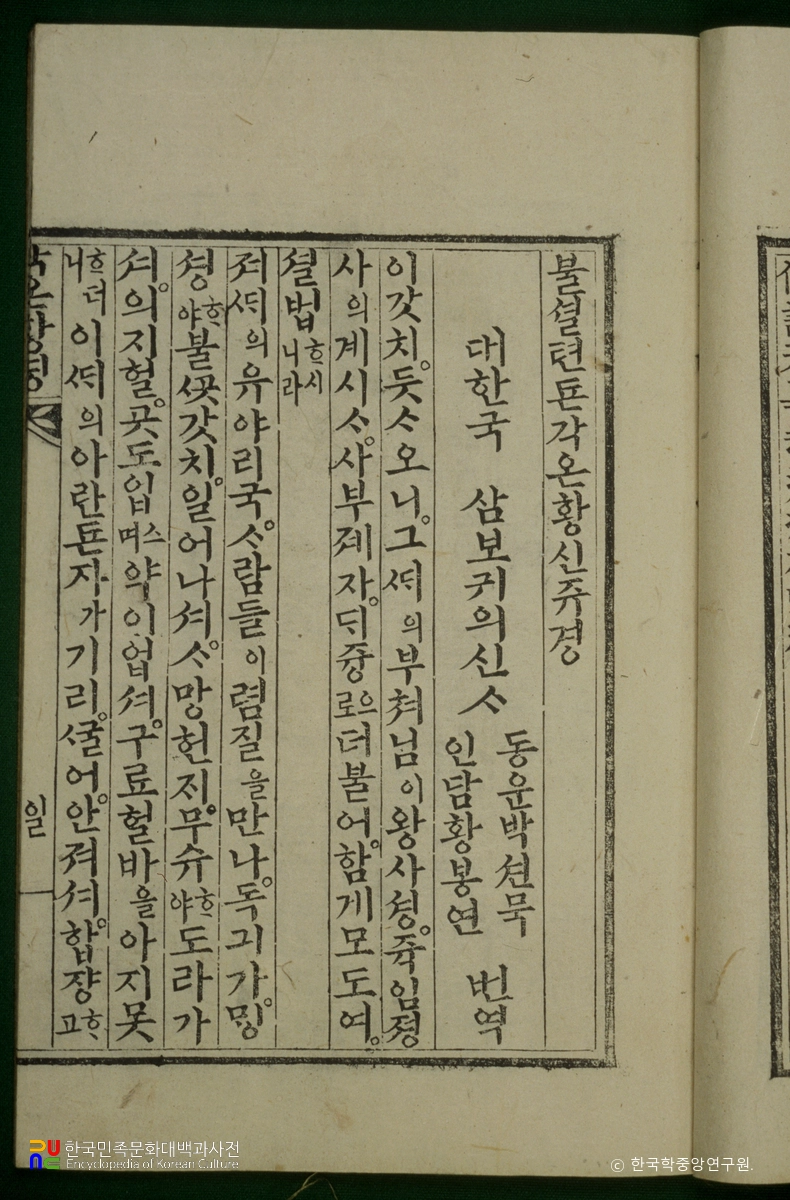 불셜텬됸각온황신쥬경
대한국 삼보귀의신ᄉᆞ
동운박션묵
인담황봉연
번역
이갓치。듯ᄉᆞ오니。그ᄯᆡ의부쳐님이왕사셩。쥭임졍
사의계시ᄉᆞ。사부졔자。ᄃᆡ즁으로더불어。함게모도여。
셜법ᄒᆞ시니라
져ᄯᆡ의유야리국。ᄉᆞ람들이렴질을만나。독긔가。밍
셩ᄒᆞ야불ᄭᅩᆺ갓치。일어나셔。ᄉᆞ망헌지。무슈ᄒᆞ야도라가
셔。의지헐。곳도입스며약이업셔。구료헐바을아지못
ᄒᆞ더니이ᄯᆡ의아란됸자가기리。ᄭᅮᆯ어。안져셔。합쟝ᄒᆞ고
일
한국민족문화대백과사전
Encyclopedia of Korean Culture
ⓒ 한국학중앙연구원.